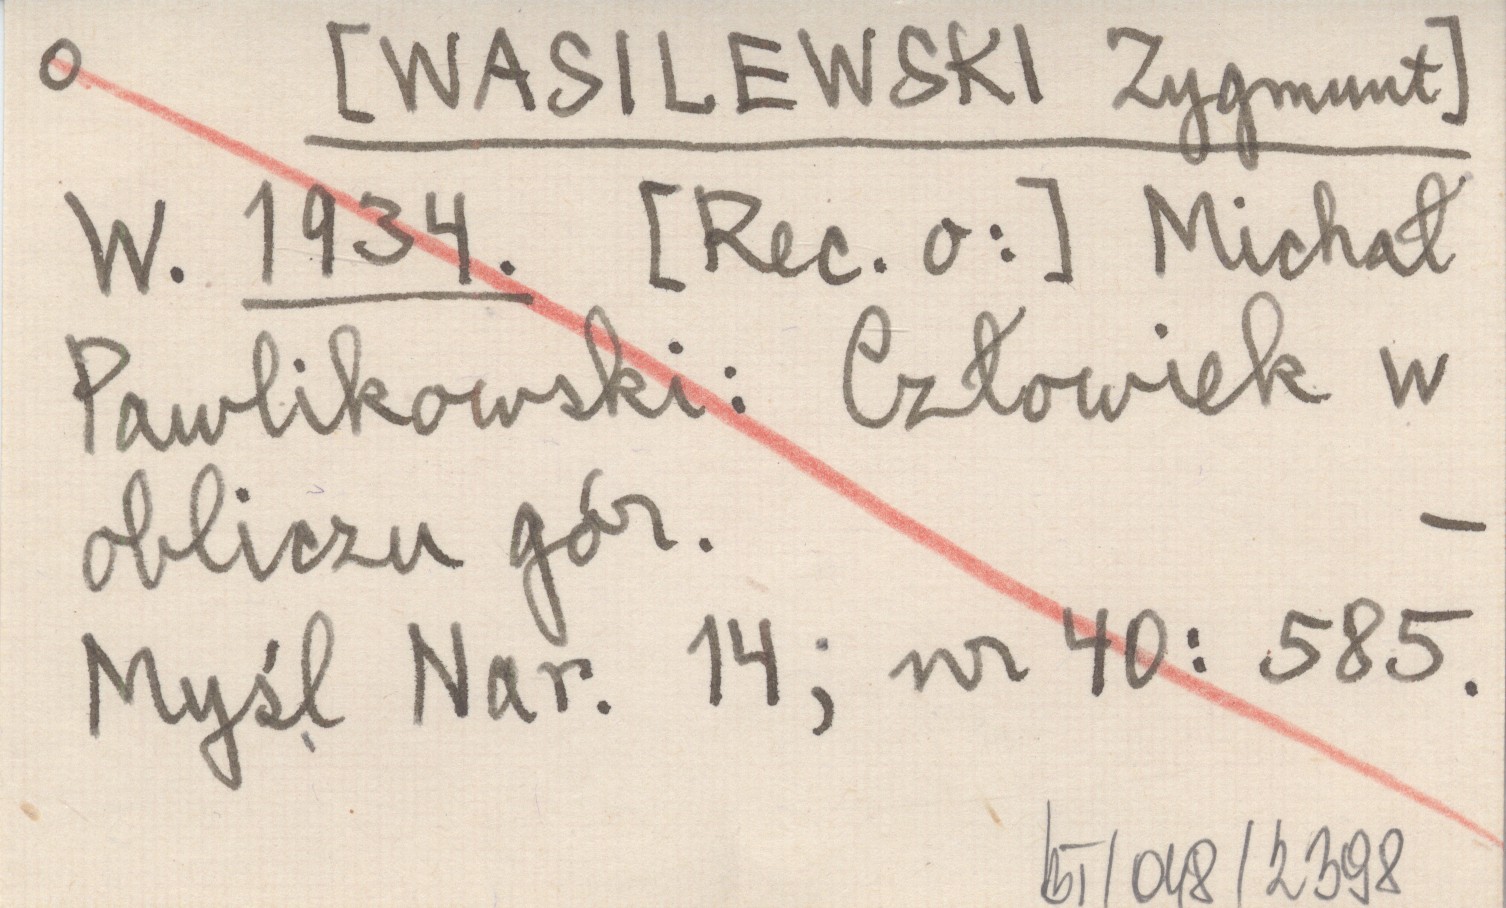 o [WASILEWSKI Zygmunt]
W. 1934. [Rec. o:] Michał
Pawlikowski: Człowiek w
obliczu gór. –
Myśl Nar. 14; nr 40: 585.
/048/2398